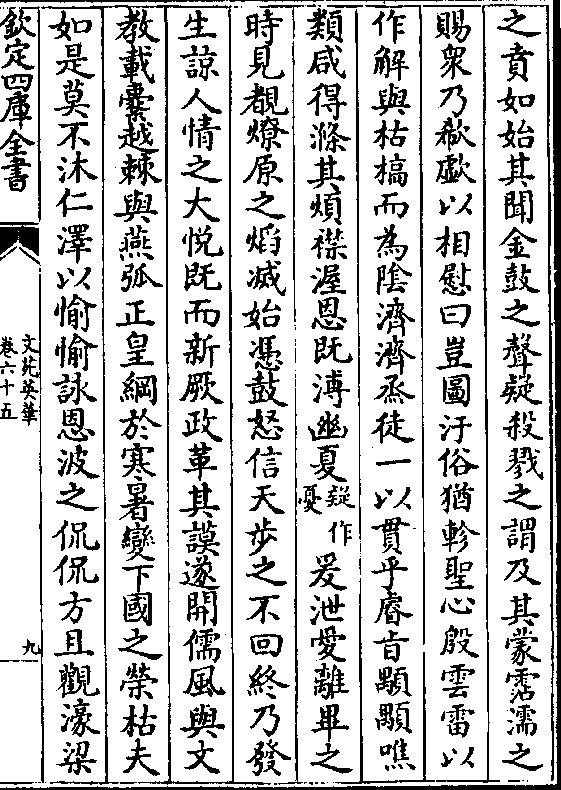 之賁如始其聞金鼓之聲疑殺戮之謂及其蒙霑濡之
賜衆乃欷歔以相慰曰豈圖汙俗猶軫聖心殷雲雷以
作解與枯槁而為陰濟濟烝徒一以貫乎睿旨顒顒噍
類咸得滌其煩襟渥恩既溥幽夏疑作憂爰泄愛離畢之
時見覩燎原之焰滅始憑鼓怒信天步之不回終乃發
生諒人情之大悅既而新厥政革其謨遂開儒風與文
教載櫜越棘與燕弧正皇綱於寒暑變下國之榮枯夫
如是莫不沐仁澤以愉愉詠恩波之侃侃方且觀濠梁
欽定四庫全書
文苑英華
卷六十五
九